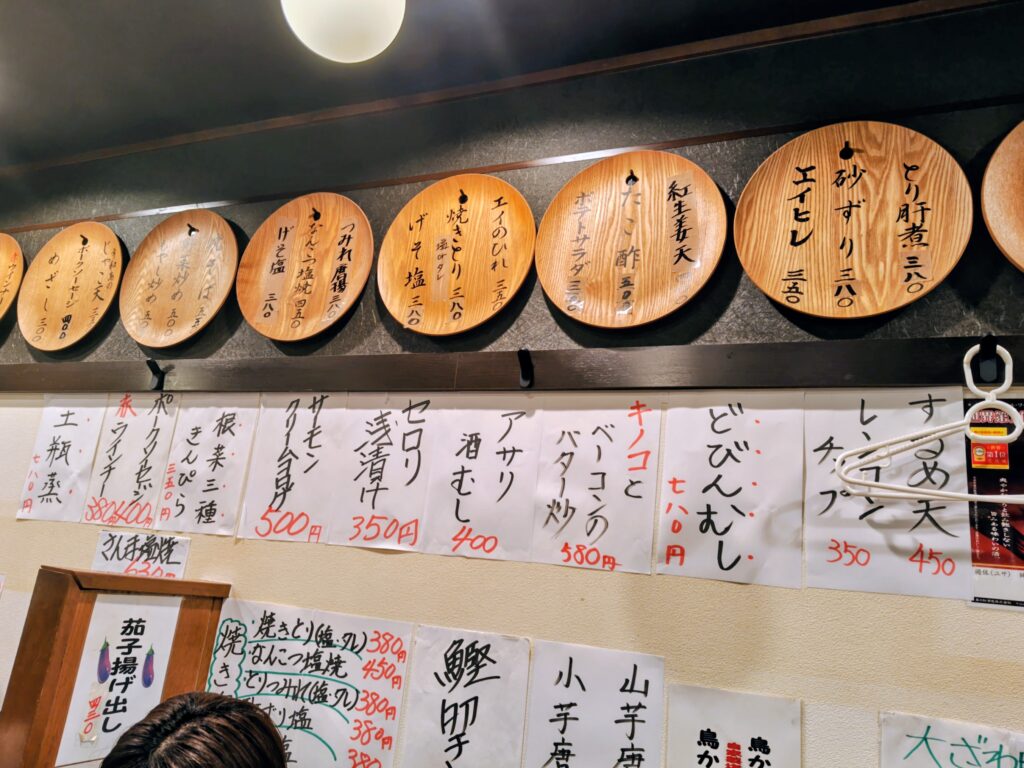 とり肝煮 三八〇
砂ずり 三八〇
エイヒレ 三五〇
紅生姜天
たこ酢 五〇〇
ポテトサラダ 三五〇
エイのひれ 三五〇
焼きとり 塩・タレ 三八〇
げそ塩
つみれ唐揚 三八〇
なんこつ塩焼 四五〇
げそ塩 三八〇
ポークソーセージ 四〇〇
めざし 三〇〇
するめ天 450
レンコンチップ 350
どびんむし 七八〇円
キノコと
ベーコンの
バター炒 580円
アサリ
酒むし 400
セロリ
浅漬け 350円
サーモン
クリームコロッケ 500円
根菜三種
きんぴら 三五〇円
ポークソーセージ 400円
赤ウインナー 380
土瓶蒸 七八〇円
さんま塩焼 630円
茄子揚げ出し 四三〇
焼き
・焼きとり(塩・タレ) 380円
・なんこつ塩焼 450円
・とりつみれ(塩・タレ) 380円
ずり塩 380円
380
鰹
山芋唐
小芋唐
鳥か
鳥か
大ざわ
第1位